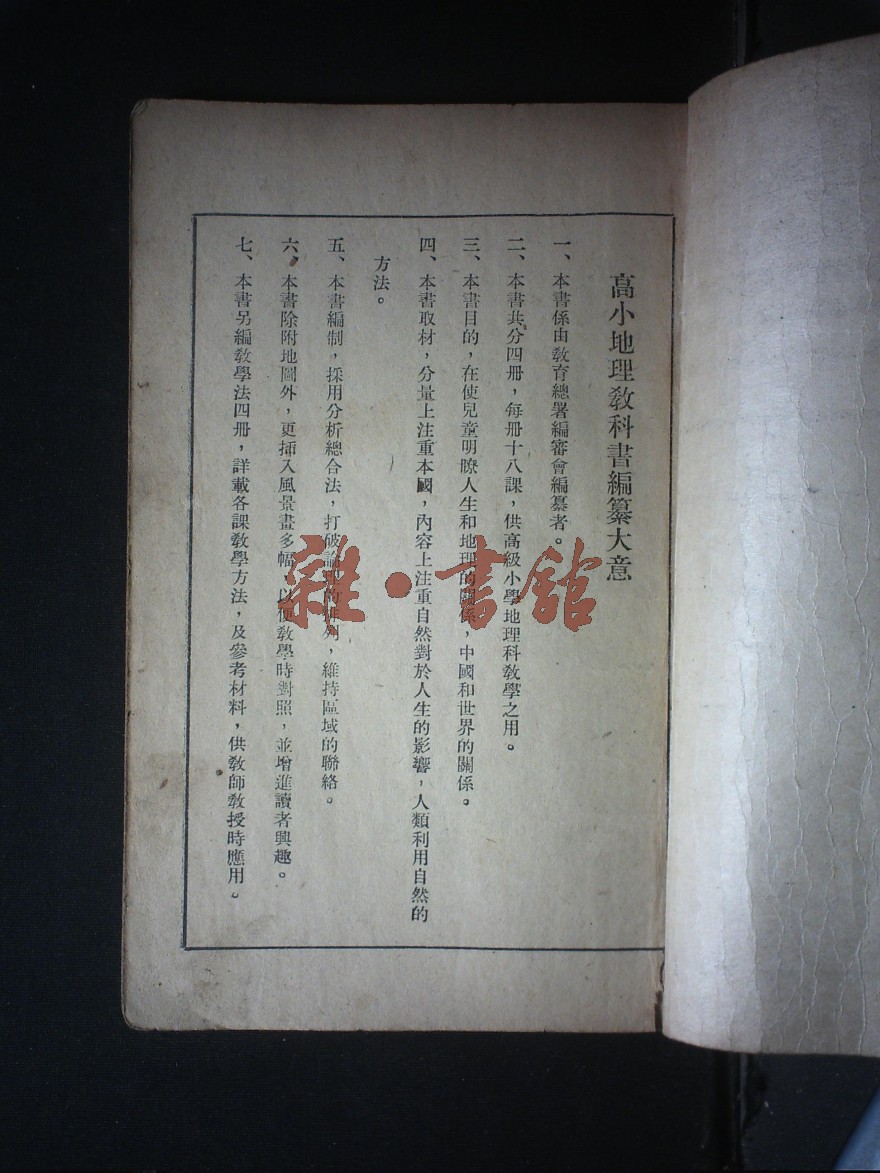 高小地理教科書編纂大意
一、本書係由教育總署編審會編纂者。
二、本書共分四冊，每冊十八課，供高級小學地理科教學之用。
三、本書目的，在使兒童明瞭人生和地理的關係，中國和世界的關係。
四、本書取材，分量上注重本國，內容上注重自然對於人生的影響，人類利用自然的
方法。
五、本書編制，採用分析總合法，打破論理的排列，維持區域的聯絡。
六、本書除附地圖外，更插入風景畫多幅，以便教學時對照，並增進讀者興趣。
七、本書另編教學法四冊，詳載各課教學方法，及參考材料，供教師教授時應用。
雜·書館